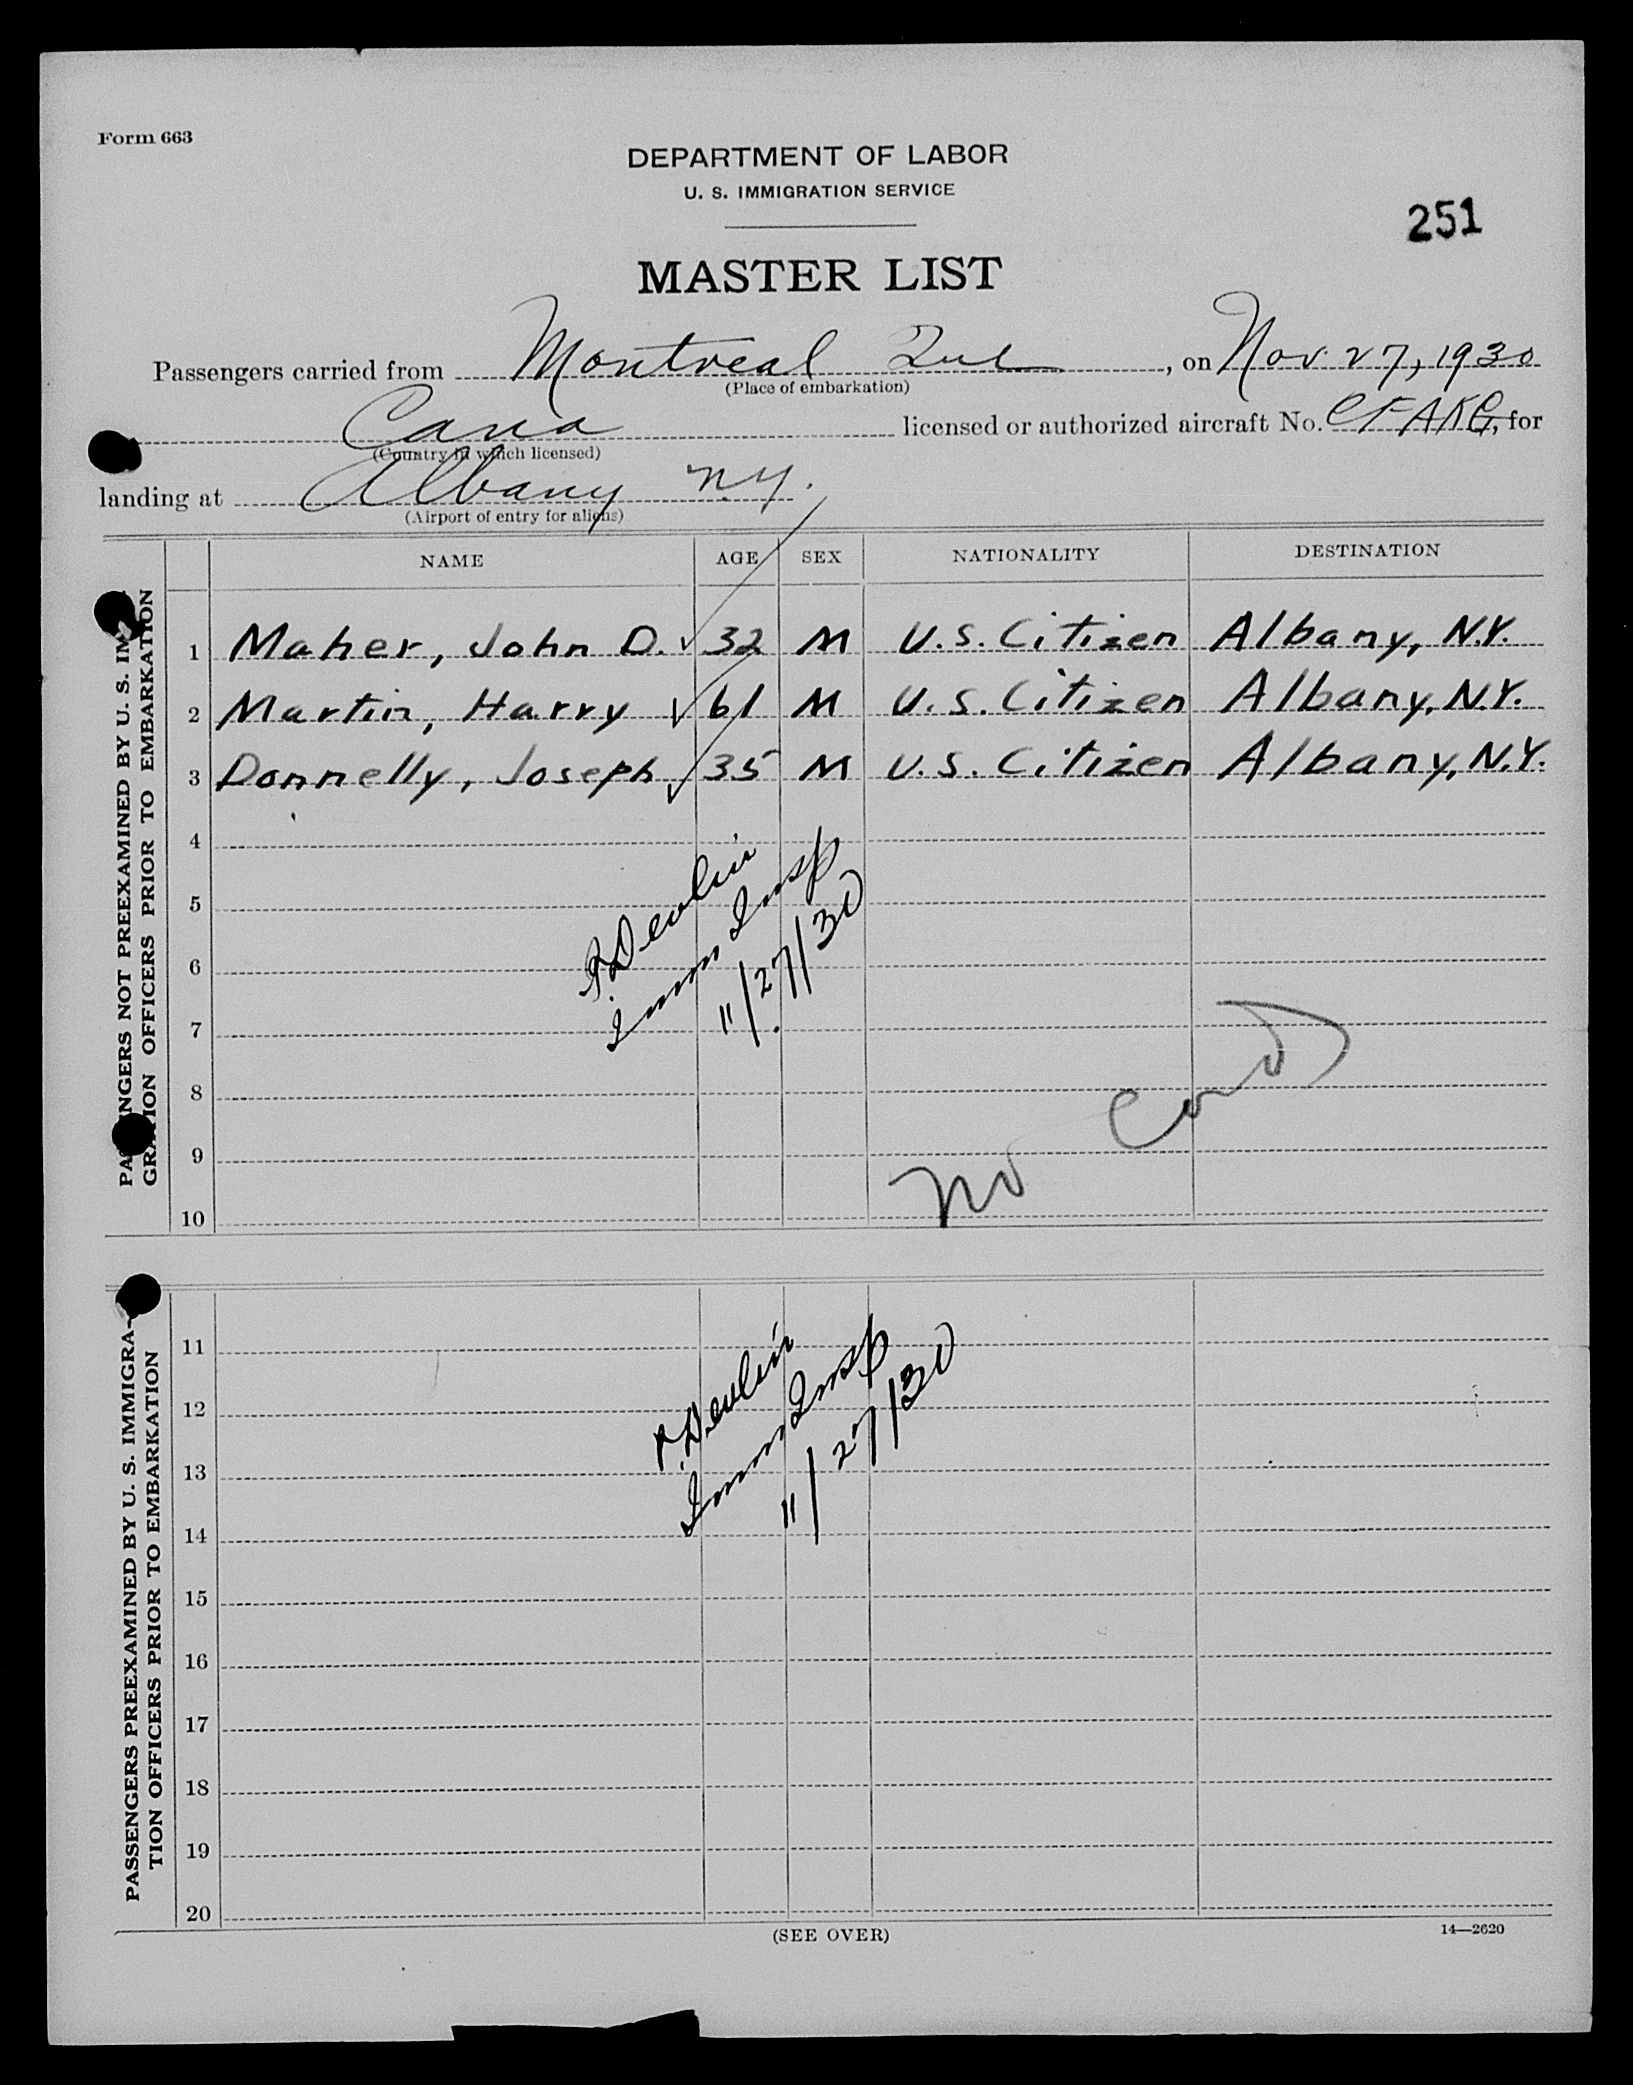 Form 663
DEPARTMENT OF LABOR
U. S. IMMIGRATION SERVICE
251
MASTER LIST
Passengers carried from Montreal Que, on Nov. 27, 1930
(Place of embarkation)
Cana licensed or authorized aircraft No. CFAKG, for
(Country in which licensed)
landing at Albany N.Y.
(Airport of entry for aliens)
NAME AGE SEX NATIONALITY DESTINATION
PASSENGERS NOT PREEXAMINED BY U. S. IMMI
GRATION OFFICERS PRIOR TO EMBARKATION
1 Maher, John D. ✓ 32 M U.S. Citizen Albany, N.Y.
2 Martin, Harry ✓ 61 M U.S. Citizen Albany, N.Y.
3 Donnelly, Joseph ✓ 35 M U.S. Citizen Albany, N.Y.
4
5
6
7
8
9
10
Devlin
Imm Insp
11/27/30
no card
PASSENGERS PREEXAMINED BY U. S. IMMIGRA-
TION OFFICERS PRIOR TO EMBARKATION
11
12
13
14
15
16
17
18
19
20
Devlin
Imm Insp
11/27/30
(SEE OVER)
14—2620